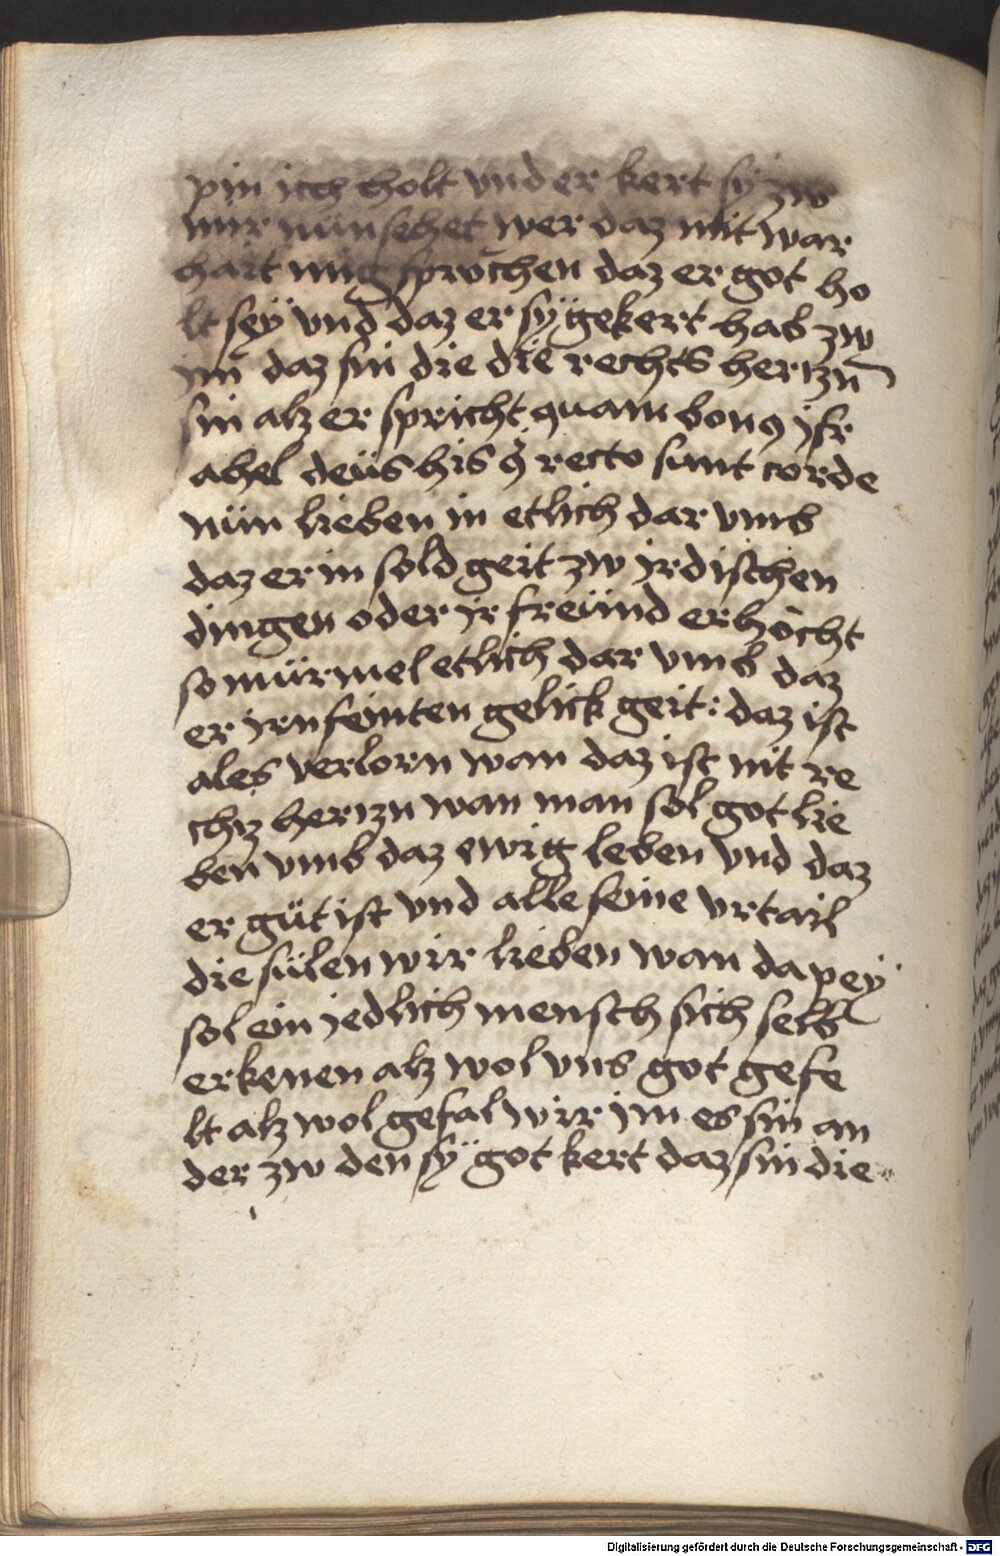 pin ich holt vnd er kert sÿ zw
mir nün sehet wer daz mit war
hait müg sprochen daz er got ho
lt seÿ vnd daz er sÿ gekert hab zw
im daz sin die die rechts hertzn̄
sin alz er spricht quam bonꝯ jsr
ahel deüs his qͥ recto sunt corde
nün lieben in etlich dar vmb
daz er in sold geit zw jrdischen
dingen oder jr freünd erhöcht
so mürmel etlich dar vmb daz
er jrn feinten gelick geit: daz ist
ales verlorn wan daz ist nit re
chtz hertzn wan man sol got lie
ben vmb daz ewig leben vnd daz
er güt ist vnd alle seine vrtail
die sülen wir lieben wan da peÿ
sol ein jedlich mensch sich selb
erkenen alz wol vns got gefe
lt alz wol gefal wir jm es sin an
der zw den sÿ got kert daz sin die
Digitalisierung gefördert durch die Deutsche Forschungsgemeinschaft - DFG